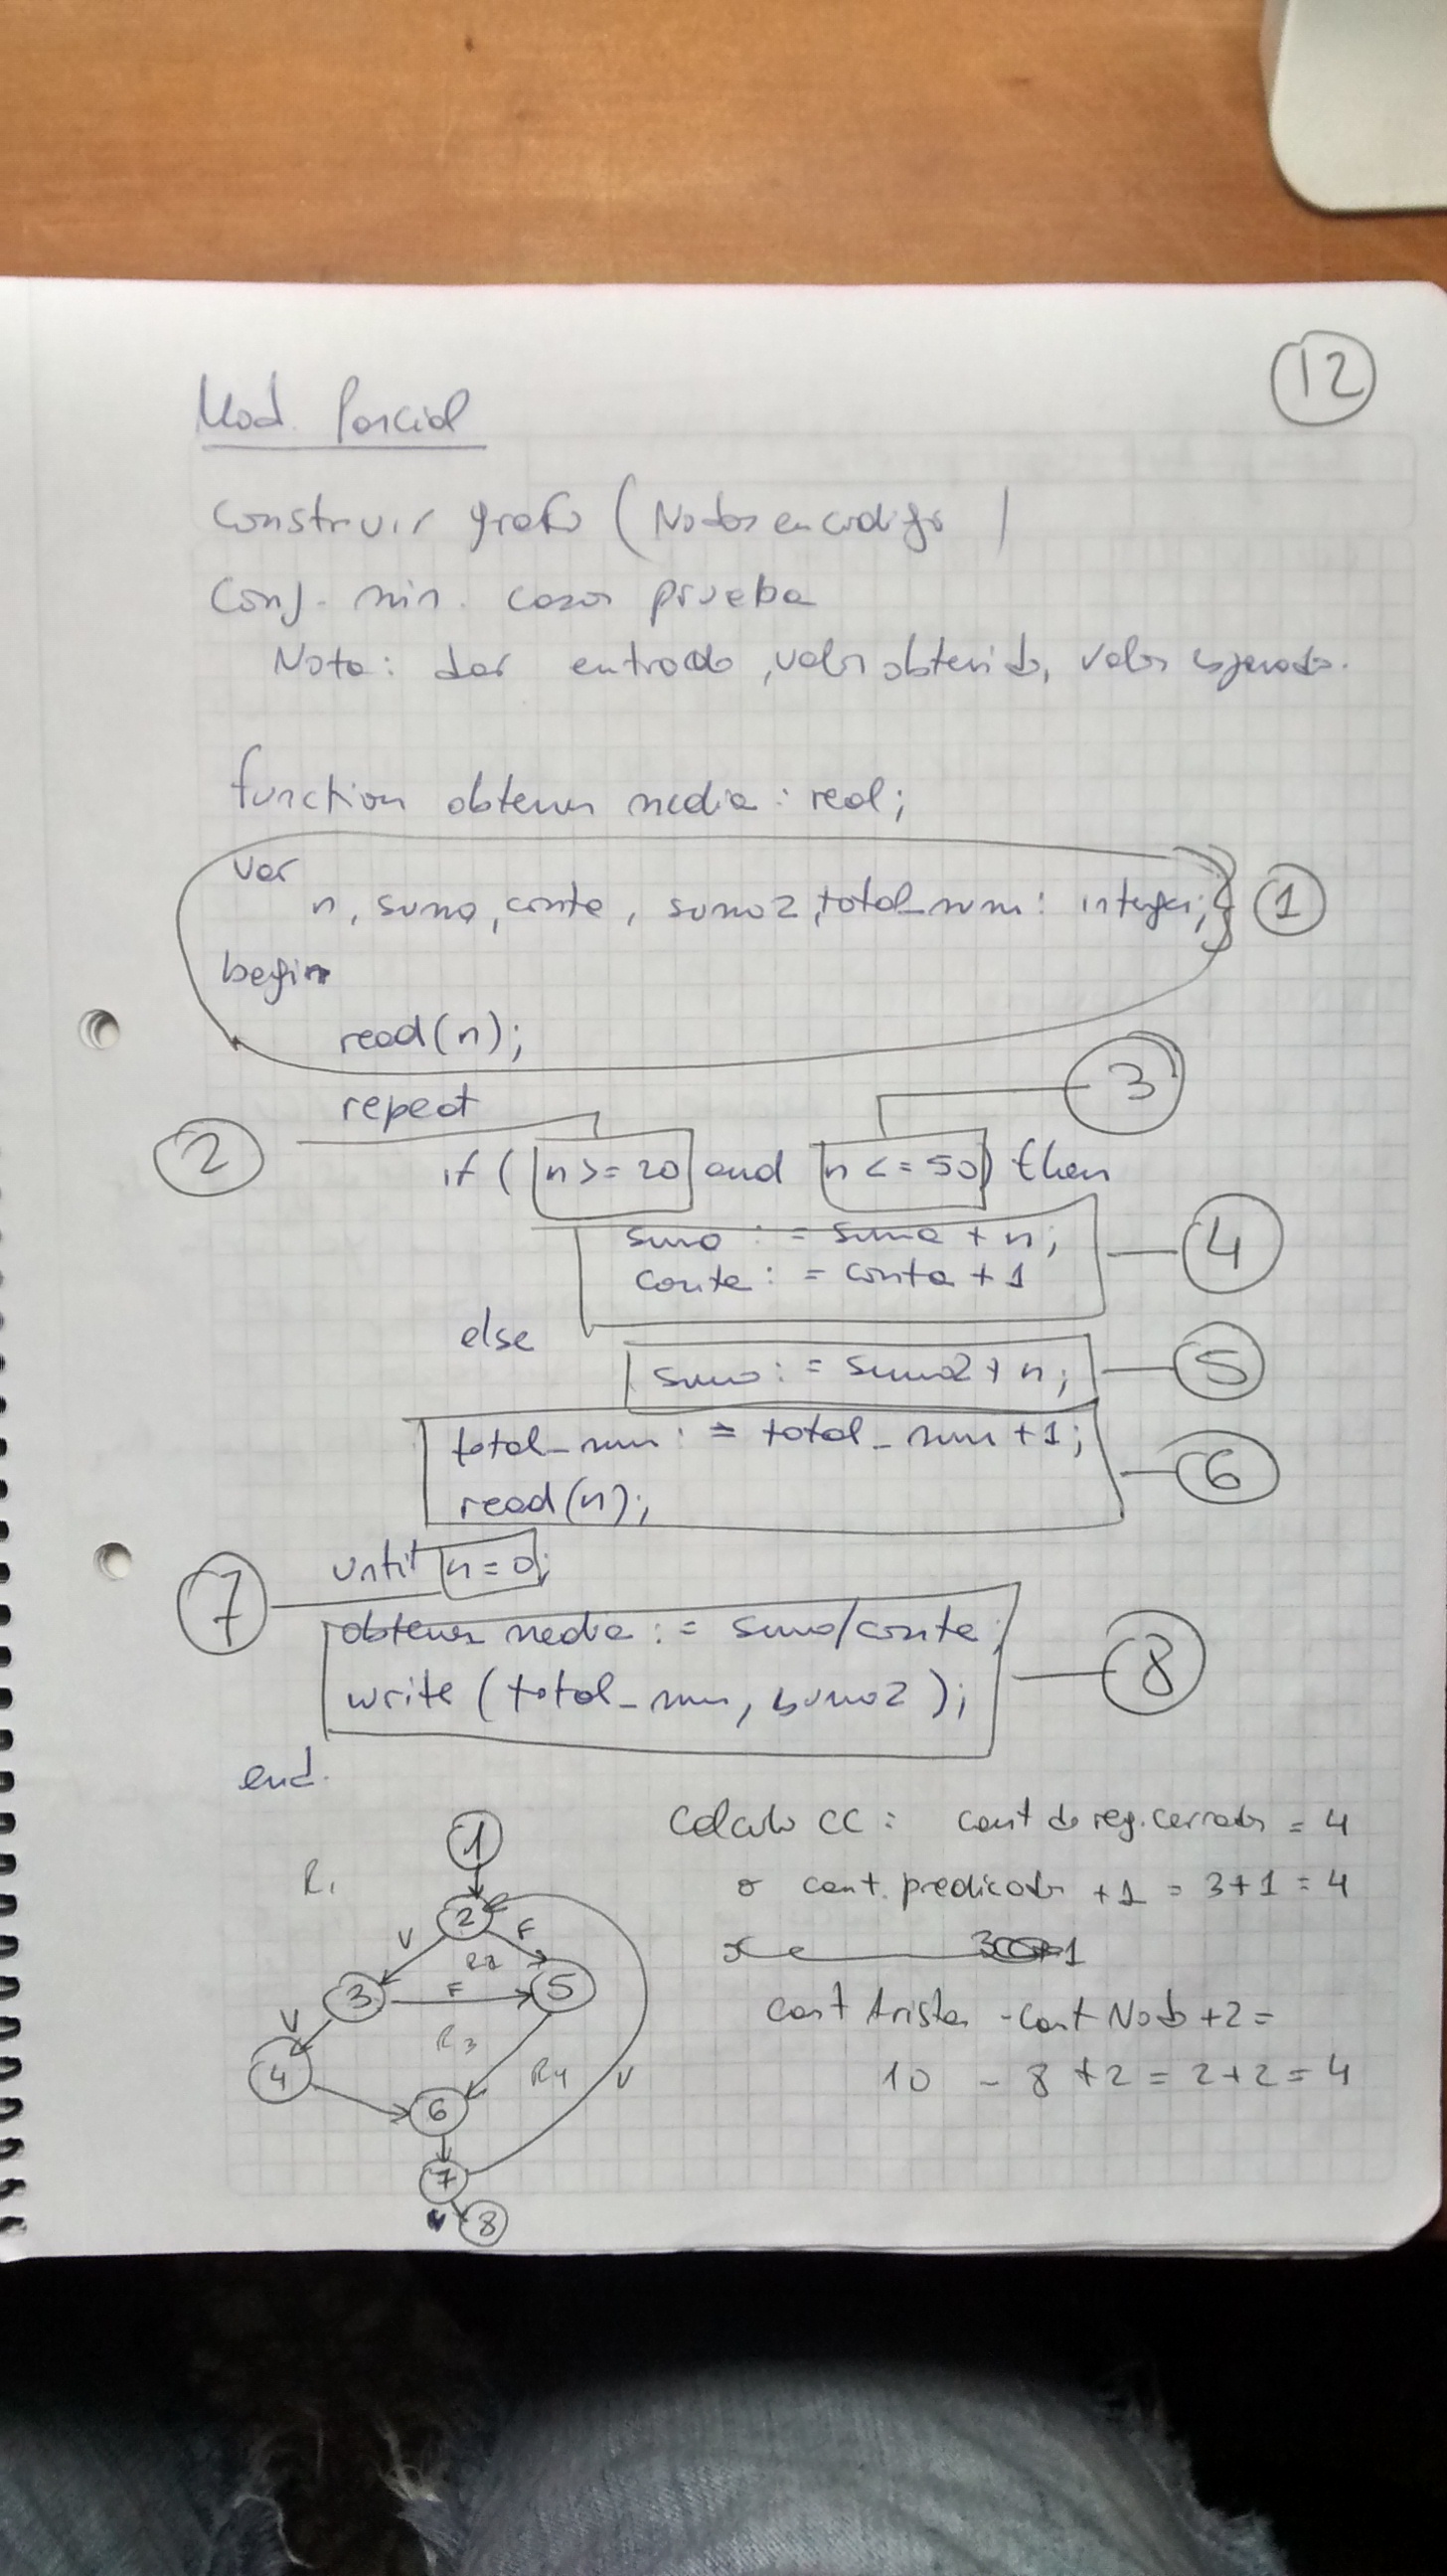 12
Mod. Parcial
Construir grafo (Nodos en codigo)
Conj. min. casos prueba
Nota: dar entrada, valor obtenido, valor esperado.
function obtener media: real;
var
n, suma, conta, suma2, total_num: integer; 1
begin
read(n);
repeat 3
2 if (n >= 20 and n <= 50) then
suma := suma + n; 4
conta := conta + 1
else
suma := suma2 + n; 5
total_num := total_num + 1; 6
read(n);
7 until n = 0;
obtener media := suma/conta; 8
write (total_num, suma2);
end.
1
R1
2
V F
R2
3 F 5
V
R3
4 R4 V
6
7
8
Calculo CC: cant de reg. cerradas = 4
o cant. predicados + 1 = 3+1 = 4
cant Aristas - cant Nodo + 2 =
10 - 8 + 2 = 2+2 = 4